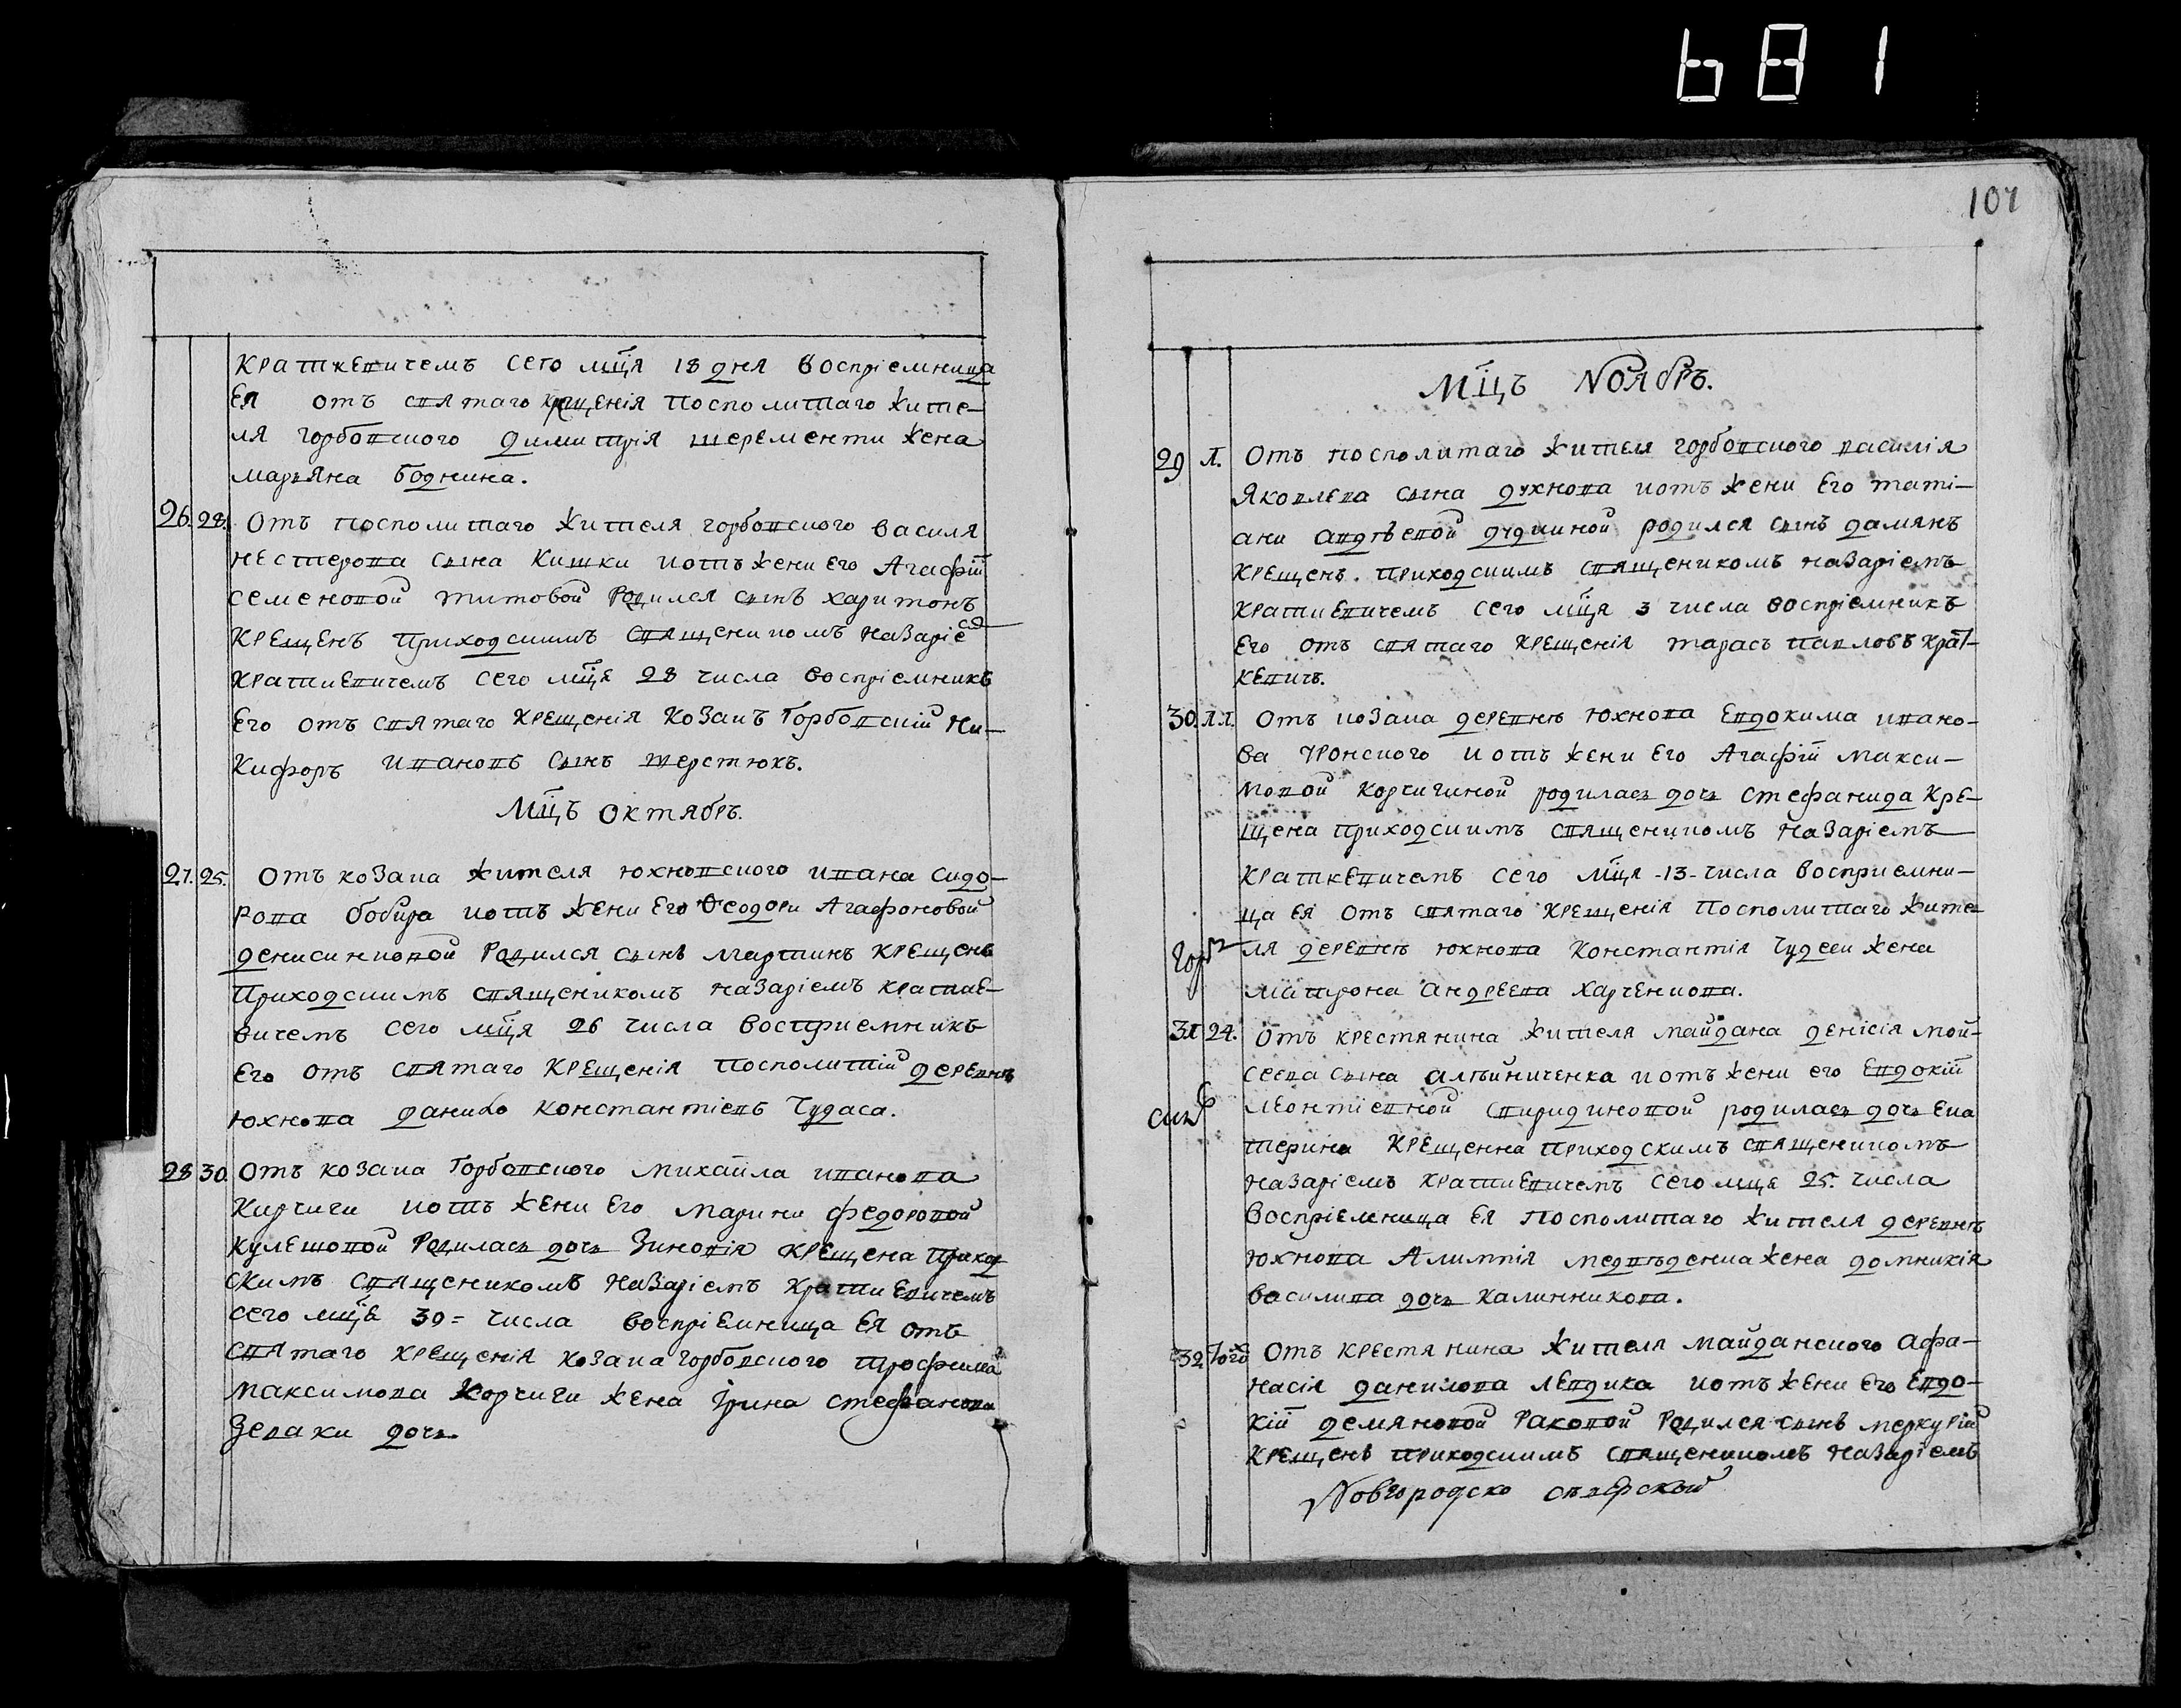 681
107
Краткевичемъ сего мц҃я 18 дня воспріемница
Ея отъ святаго крещенія посполитаго жите-
ля горбовского димитрія шеременти жена
маръяна боднина.
26. 24. Отъ посполитаго жителя горбовского василя
нестерова сына Кишки иотъ жени его Агафіи
семеновой титовой родился сынъ харитонъ
крещенъ приходскимъ священикомъ назаріе
краткевичемъ сего мц҃я 28 числа воспріемникъ
Его отъ святаго крещенія козакъ Горбовскій Ни-
кифоръ ивановъ сынъ шерстюкъ.
Мц҃ъ октябръ.
27. 25. Отъ козака жителя юхновского ивана сидо-
рова бобира иотъ жени Его Ѳеодори Агафоновой
денисинковой Родился сынъ мартинъ крещенъ
Приходскимъ священикомъ назаріемъ кратке-
вичемъ сего мц҃я 26 числа восприемникъ
Его отъ святаго крещенія посполитій деревнѣ
юхнова данило константіевъ Чудаса.
28 30. Отъ козака Горбовского михаила иванова
Кирчиги иотъ жени Его марини федоровой
кулешовой Родилась дочь Зиновія крещена приход
скимъ священикомъ назаріемъ краткевичемъ
сего мц҃я 30= числа воспріемница ея отъ
святаго крещенія козака горбовского трофима
максимова Корчиги жена Ірина стефанова
Зеваки дочь
Мц҃ъ Nоябръ.
29 Л. Отъ посполитаго жителя горбовского василія
Яковлева сына духнова иотъ жени Его таті-
ани авдѣевой дудкиной родился сынъ дамянъ
крещенъ. приходскимъ священикомъ назаріемъ
краткевичемъ сего мц҃я 3 числа воспріемникъ
Его отъ святаго крещенія тарасъ павловъ крат-
кевичъ.
30. ЛЛ. Отъ козака деревнѣ юхнова Евдокима ивано-
ва Уронского иотъ жени Его Агафіи макси-
мовой корчигиной родилась дочь стефанида кре-
щена приходскимъ священикомъ назаріемъ
краткевичемъ сего мц҃я -13- числа восприемни-
ца ея отъ святаго крещенія посполитаго жите
ля деревнѣ юхнова константія Чудеси жена
матрона андреева харченкова.
31 24. Отъ крестянина жителя майдана денісія мой-
сеева сына алѣйниченка иотъ жени его Евдокіи
леонтіевной спиридиновой родилась дочь Ека
терина крещенна приходскимъ священикомъ
назаріемъ краткевичемъ сего мц҃я 25. числа
воспріемница ея посполитаго жителя деревнѣ
юхнова Алимпія медвѣденка жена домникія
василива дочь калинникова.
32 Того Отъ крестянина жителя майданского афа-
насія данилова левдика иотъ жени его Евдо-
кіи демяновой Раковой Родился сынъ меркурій
крещенъ приходскимъ священикомъ назаріемъ
Nовгородско сѣверской